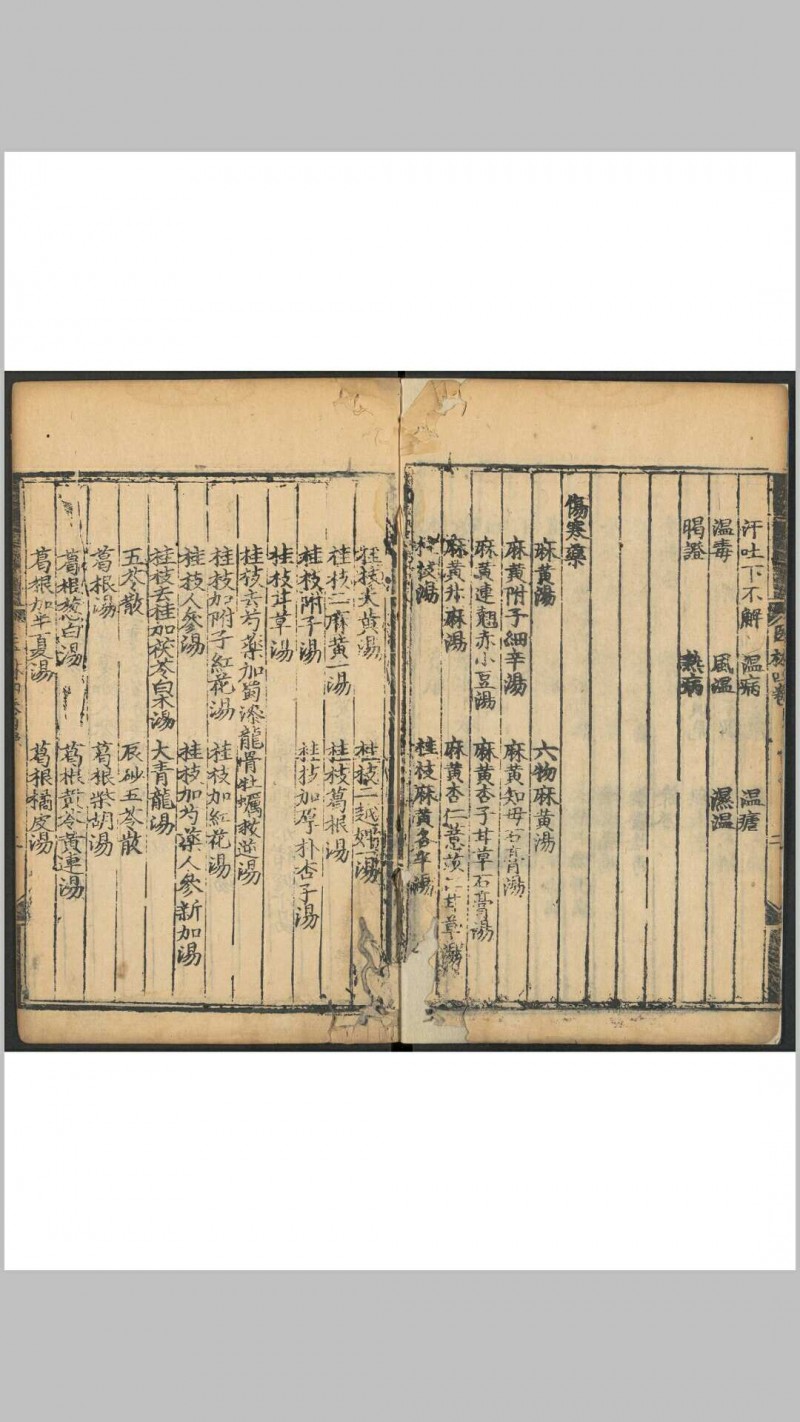 汗吐下不解 温病 温瘧
温毒 風温 濕温
暍證 熱病
傷寒藥
麻黄湯 六物麻黄湯
麻黄附子細辛湯 麻黄知母石膏湯
麻黄連翹赤小豆湯 麻黄杏子甘草石膏湯
麻黄升麻湯 麻黄杏仁薏苡甘草湯
桂枝湯 桂枝麻黄各半湯
桂枝大黄湯 桂枝二越婢一湯
桂枝二麻黄一湯 桂枝葛根湯
桂枝附子湯 桂枝加厚朴杏子湯
桂枝甘草湯
桂枝去芍藥加蜀漆龍骨牡蠣救逆湯
桂枝加附子紅花湯 桂枝加紅花湯
桂枝人參湯 桂枝加芍藥人參新加湯
桂枝去桂加茯苓白朮湯 大青龍湯
五苓散 辰砂五苓散
葛根湯 葛根柴胡湯
葛根葱白湯 葛根黄芩黄連湯
葛根加半夏湯 葛根橘皮湯